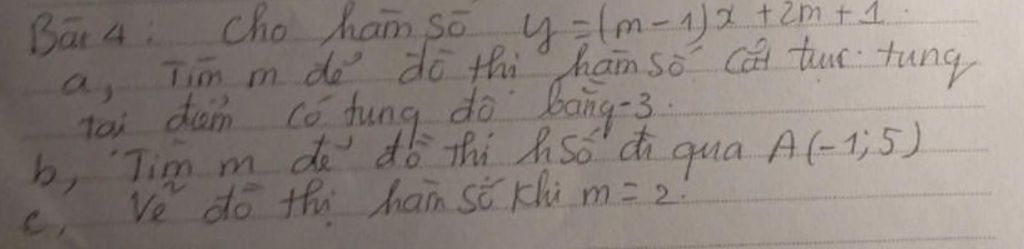 Bài 4: Cho hàm số y = (m - 1)x + 2m + 1.
a, Tìm m để đồ thị hàm số cắt trục tung
tại điểm có tung độ bằng -3.
b, Tìm m để đồ thị h số đi qua A(-1; 5)
c, Vẽ đồ thị hàm số khi m = 2.